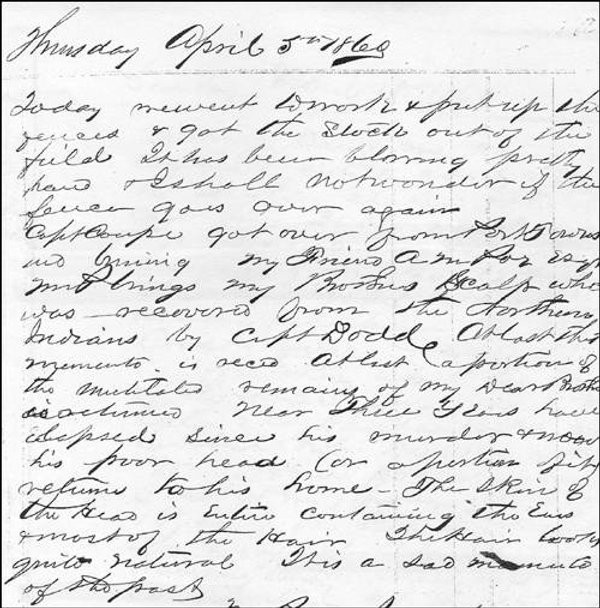 Thursday April 5th 1860
Today we went to work & put up the
fences & got the stock out of the
field It has been blowing pretty
hard & I shall not wonder if the
fence goes over again
Capt Coupe got over from Port Towns
this evening my Friend A M Poe
and brings my Brothers Scalp who
was recovered from the Northern
Indians by Capt Dodd At last this
memento is recd At last (a portion of
the mutilated remains of my Dear Brothe
is returned Near Three Years have
elapsed since his murder & now
his poor head (or a portion of it)
returns to his home - The skin of
the Head is Entire containing the Ears
& most of the Hair The Hair looks
quite natural It is a sad memento
of the past